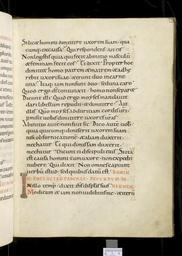 Si licet homini dimittere uxorem suam qua
cumque ex causa. Qui respondens ait eis
Non legistis quia qui fecit ab initio masculu
et feminam fecit eos. Et dixit. Propter hoc
dimittet homo patrem et matrem et adhe
rebit uxori suae. et erunt duo in carne
una. Itaq. iam non sunt duo sed una caro.
Quod ergo ds coniunxit homo non separet.
Dicunt illi. Quid ergo moyses mandavit
dari libellum repudii et dimittere. Ait
illis. Quo moyses ad duritiam cordis
permisit vobis dimittere uxores
Ab initio autem non sic. Dico aute vobis
quia quicumq. dimiserit uxorem suam
nisi ob fornicationem et aliam duxerit
mechatur. Et qui dimissam duxerit
mechatur. Dicunt ei discipuli eius. Si ita
est causa homini cum uxore non expedit
nubere. Qui dixit. Non omnes capiunt
verbu istud sed quibus datu est.
In illo temp. dixit ihs discipulis suis
Modicum et iam non videbitis me et iteru